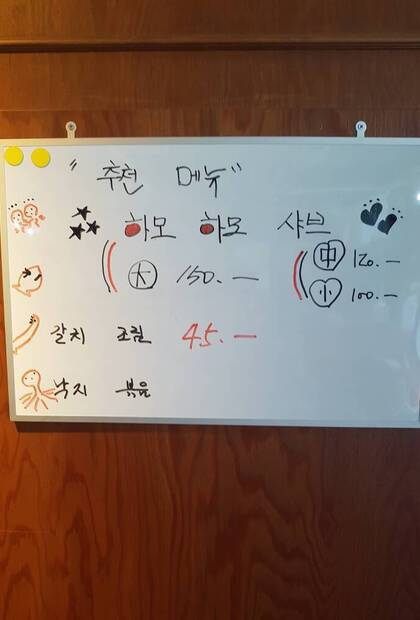 "추천 메뉴"
하모 하모 샤브
大 150.— 中 120.—
小 100.—
갈치 조림 45.—
낙지 볶음